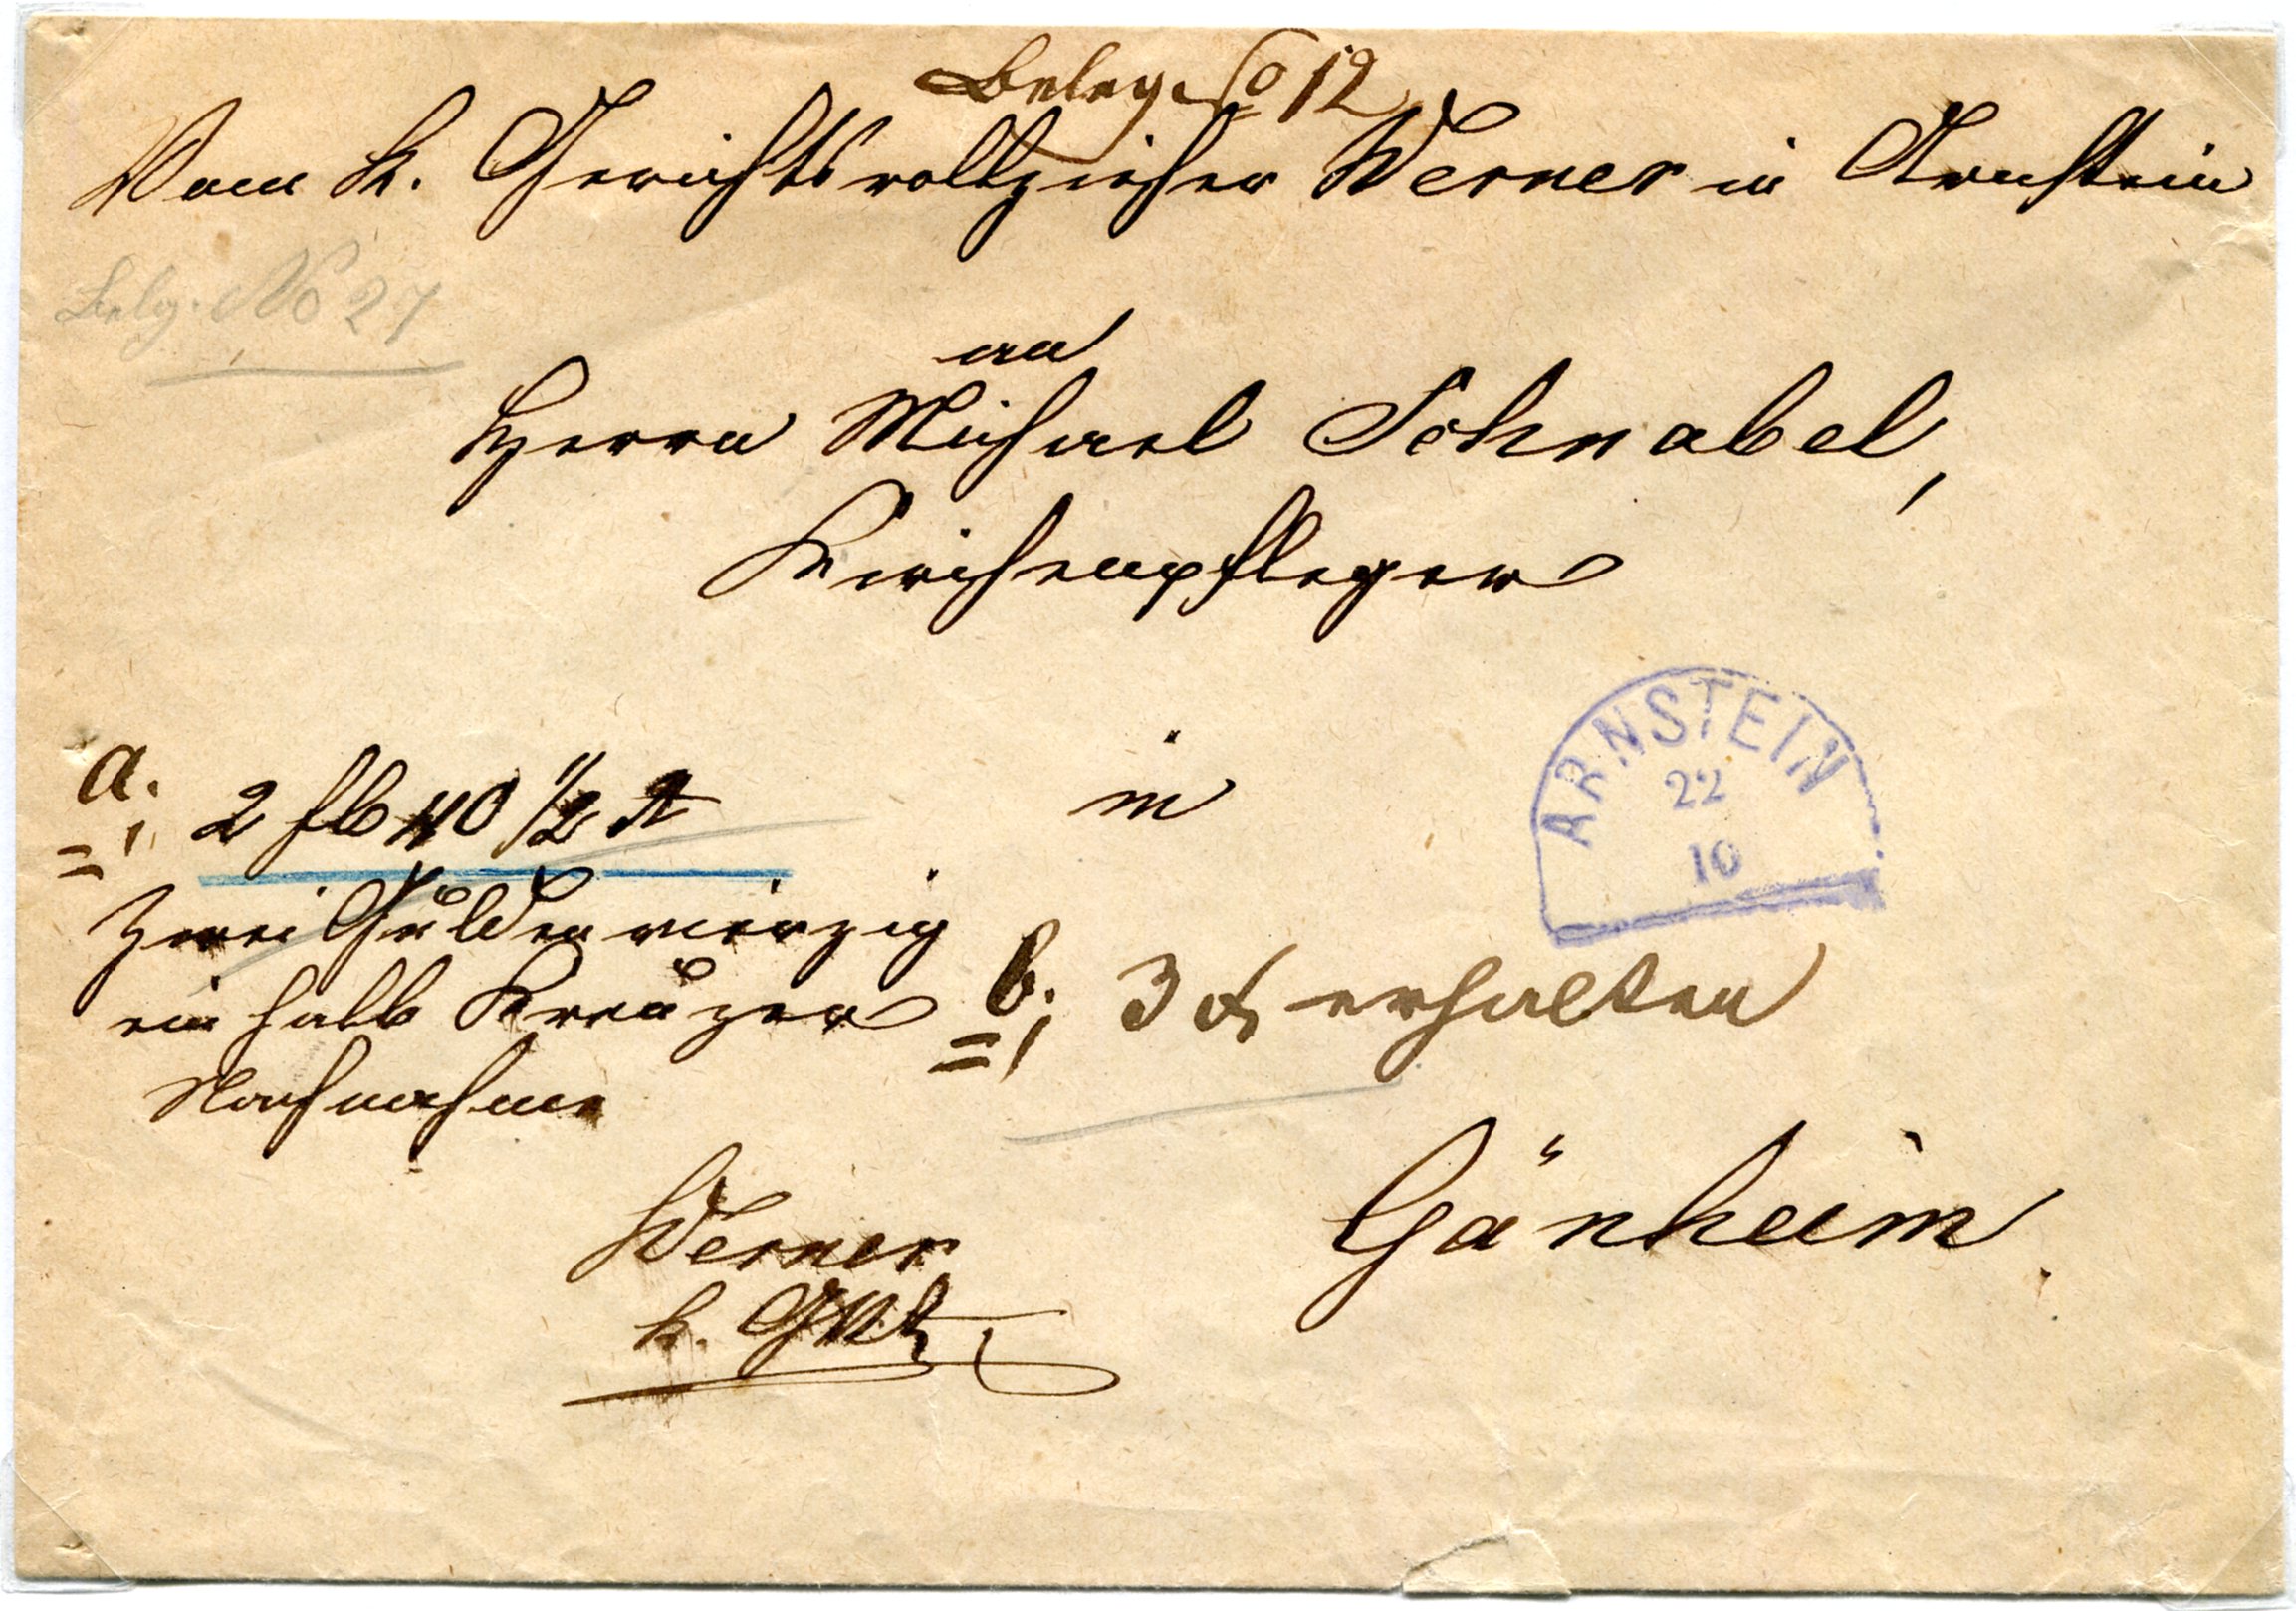 Beleg No 12
Vom k. Gerichtsvollzieher Werner in Arnstein
Belg. No 27
an
Herrn Michael Schnabel,
Kirchenpfleger
a. 2 fl 40 1/2 x
in
ARNSTEIN
22
10
Zwei Gulden vierzig
ein halb Kreuzer
b. 3 x erhalten
Nachnahme
Gänheim.
Werner
k. GVllz